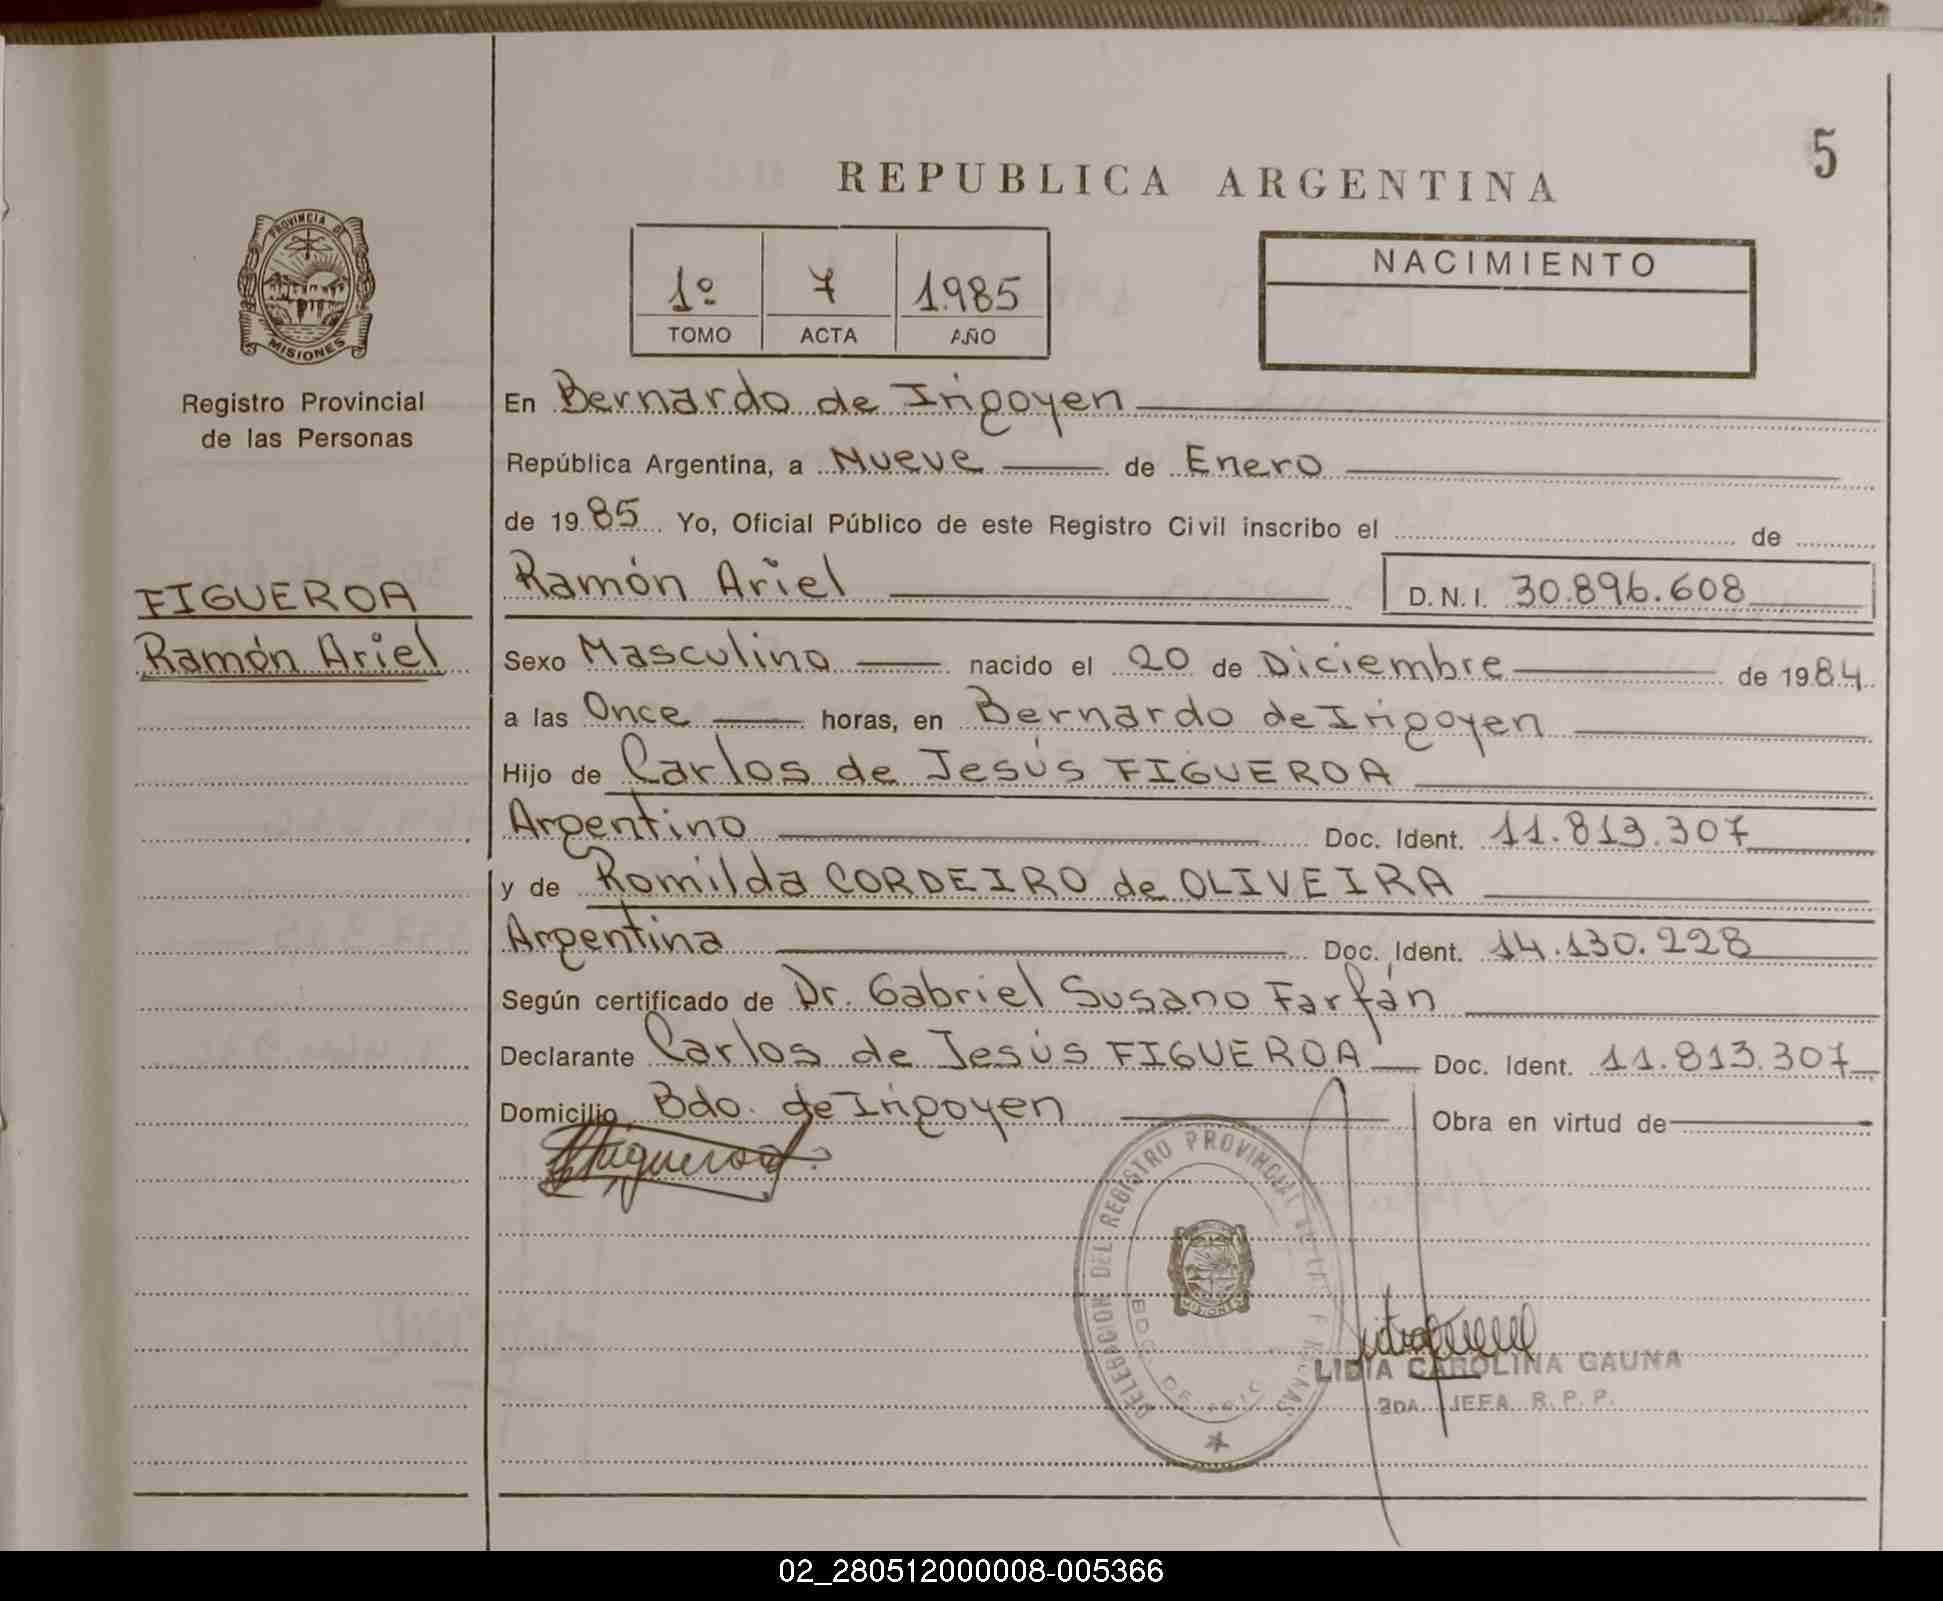 5
REPUBLICA ARGENTINA
PROVINCIA DE
MISIONES
Registro Provincial
de las Personas
1º 7 1985
TOMO ACTA AÑO
NACIMIENTO
En Bernardo de Irigoyen
República Argentina, a Nueve de Enero
de 1985 Yo, Oficial Público de este Registro Civil inscribo el de
FIGUEROA
Ramón Ariel
Ramón Ariel D.N.I. 30.896.608
Sexo Masculino nacido el 20 de Diciembre de 1984
a las Once horas, en Bernardo de Irigoyen
Hijo de Carlos de Jesús FIGUEROA
Argentino Doc. Ident. 11.813.307
y de Romilda CORDEIRO de OLIVEIRA
Argentina Doc. Ident. 14.130.228
Según certificado de Dr. Gabriel Susano Farfán
Declarante Carlos de Jesús FIGUEROA Doc. Ident. 11.813.307
Domicilio Bdo. de Irigoyen Obra en virtud de
Figueroa
DELEGACION DEL REGISTRO PROVINCIAL DE LAS PERSONAS
BDO. DE
MISIONES
LIDIA CAROLINA GAUNA
JEFA R.P.P.
02_280512000008-005366